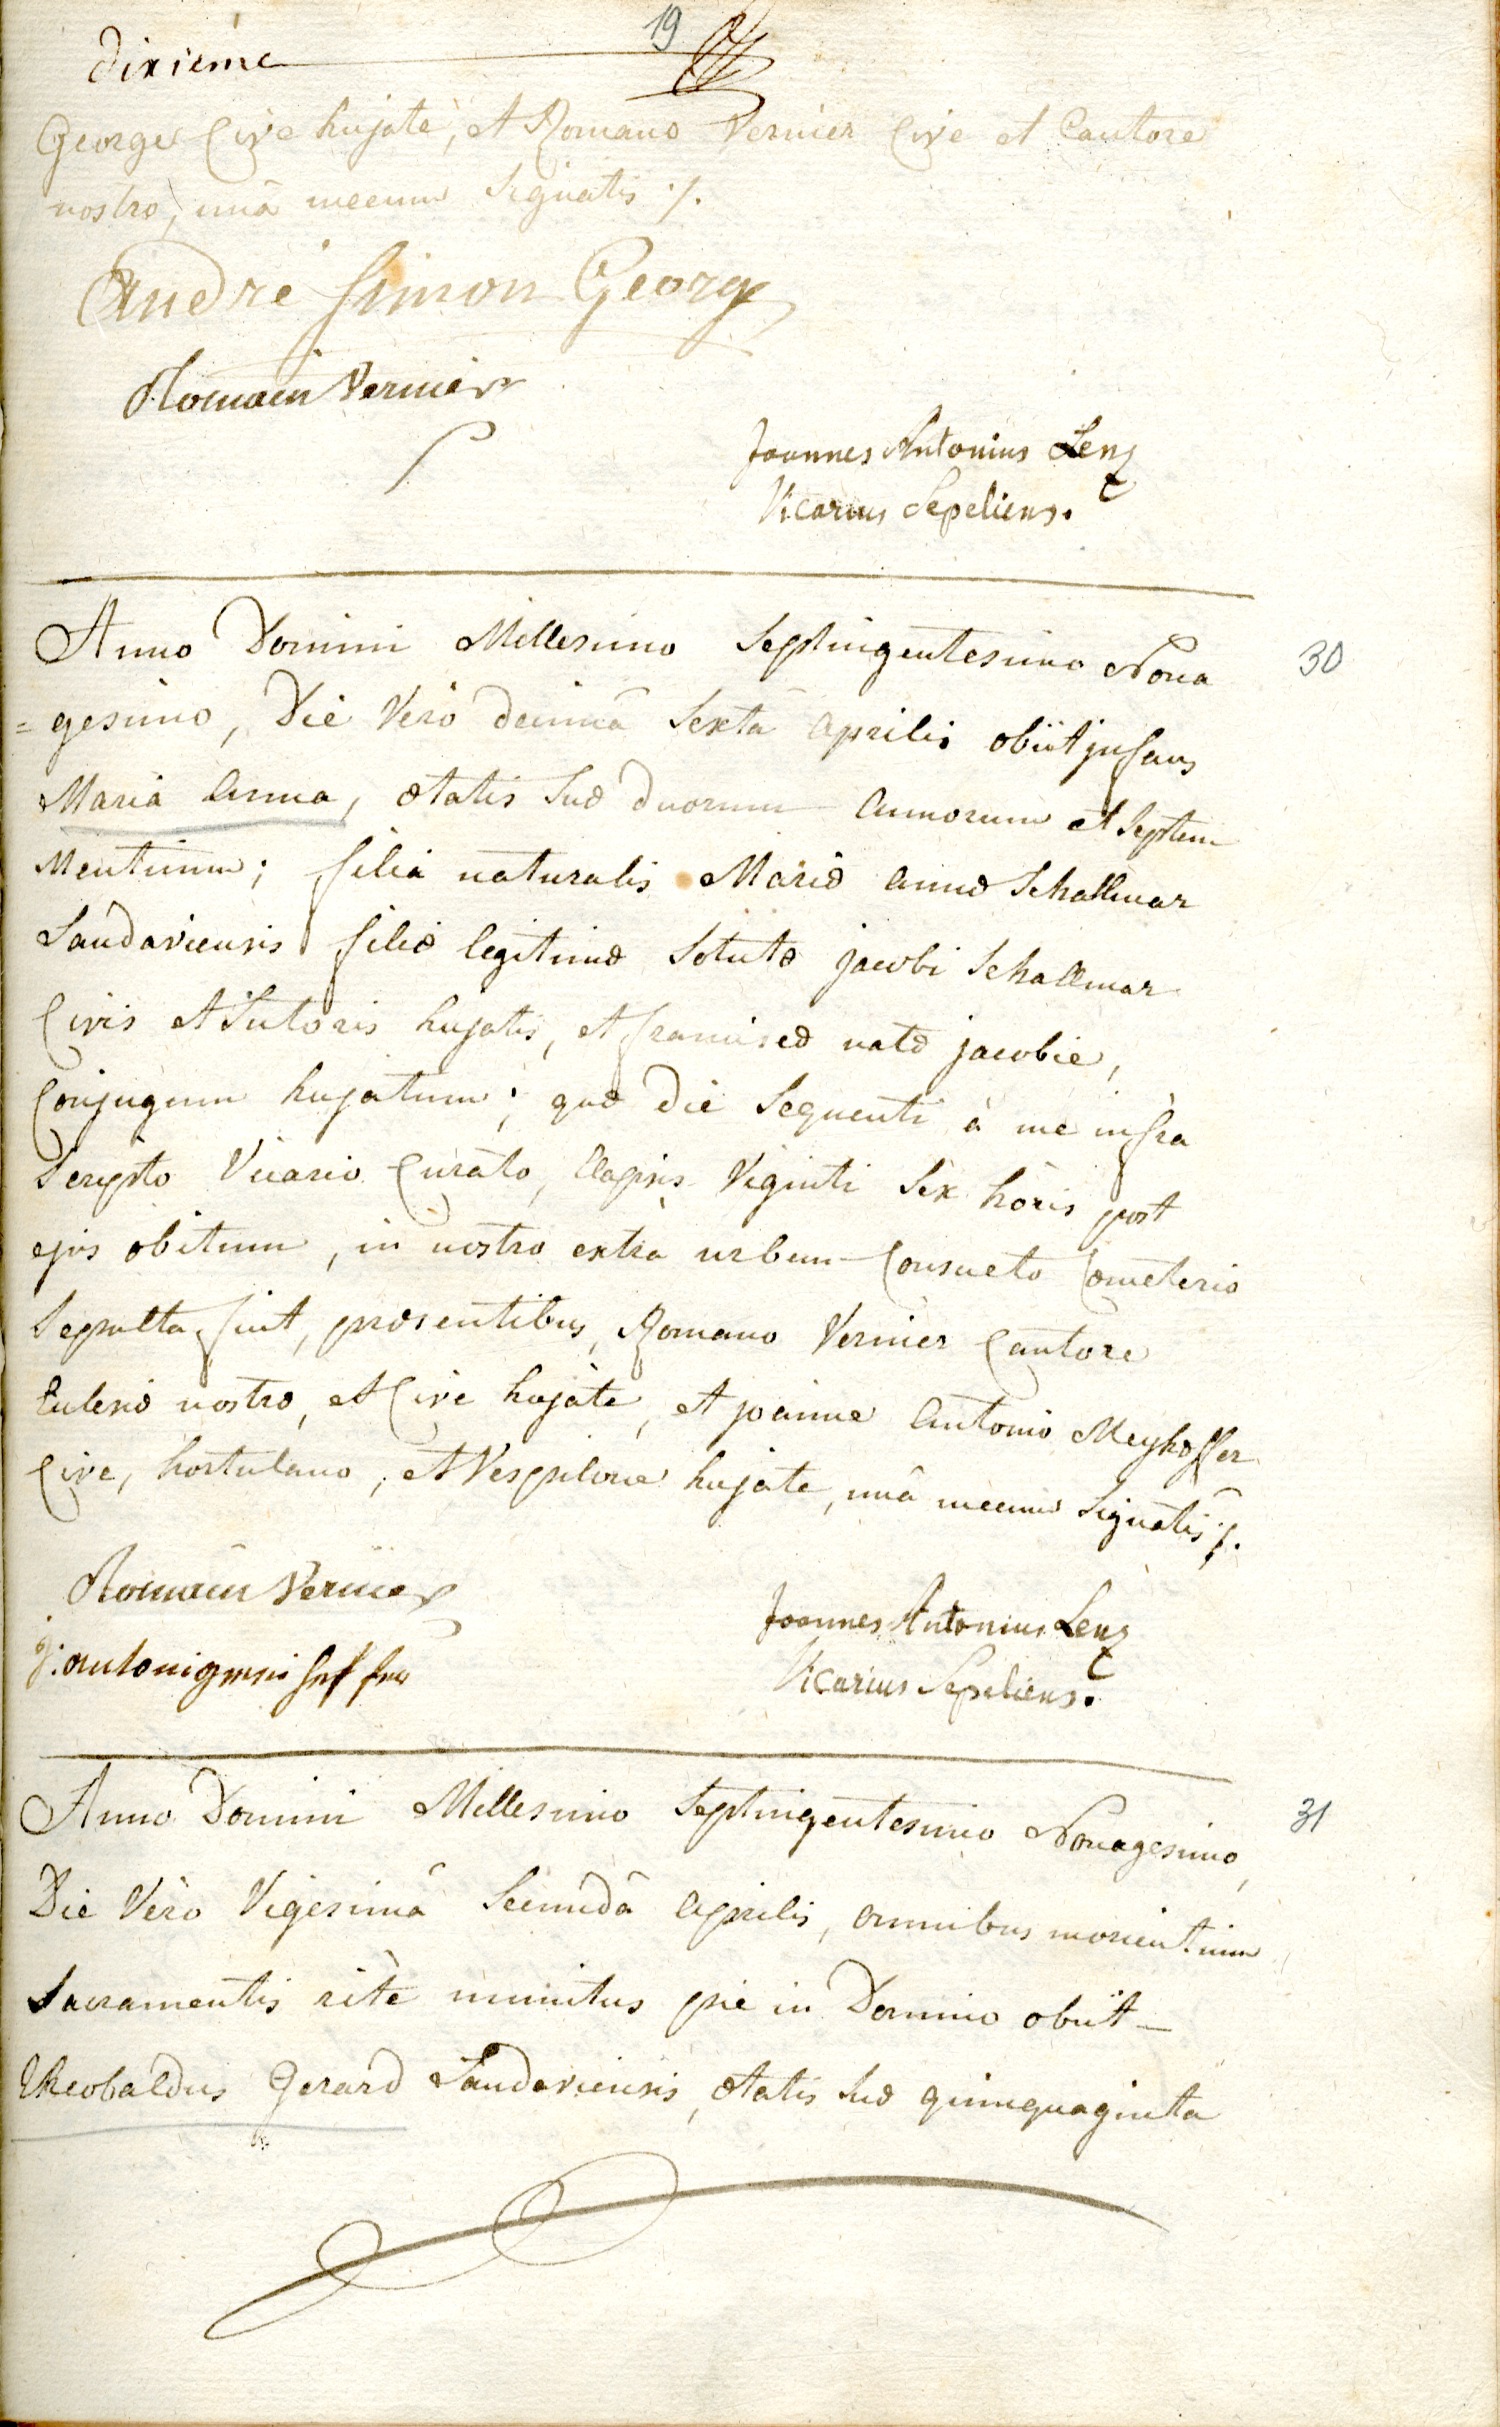 19
dixieme
George Cive hujate, et Romano Vernier Cive et Cantore
nostro, unâ mecum Signatis ./.
André Simon George
Romain Vernier
Joannes Antonius Lenz
Vicarius Sepeliens.
Anno Domini Millesimo Septingentesimo Nona 30
=gesimo, Die Verò decimâ Sextâ Aprilis obiit jnfans
Maria Anna, ætatis Suæ duorum Annorum et Septem
Mentium; filia naturalis Mariæ Annæ Schallmar
Landaviensis filiæ legitimæ Solutæ jacobi Schallmar
Civis et Sutoris hujatis, et franciscæ natæ jacobie,
Conjugum hujatum; quæ Die Sequenti à me infra
Scripto Vicario Curato, Elapsis Viginti Sex horis post
ejus obitum, in nostro extrà urbem Consueto Cœmeterio
Sepulta fuit, præsentibus, Romano Vernier Cantore
Eclesiæ nostræ, et Cive hujate, et joanne Antonio Meyhoffer
Cive, hortulano, et Vespilone hujate, unâ mecum Signatis ./.
Romain Vernier
Joannes Antonius Lenz
j: antoni
Vicarius Sepeliens.
Anno Domini Millesimo Septingentesimo Nonagesimo, 31
Die Verò Vigesimâ Secundâ Aprilis, omnibus morientium
Sacramentis ritè munitus piè in Domino obiit
Theobaldus Gerard Landaviensis, ætatis Suæ quinquaginta